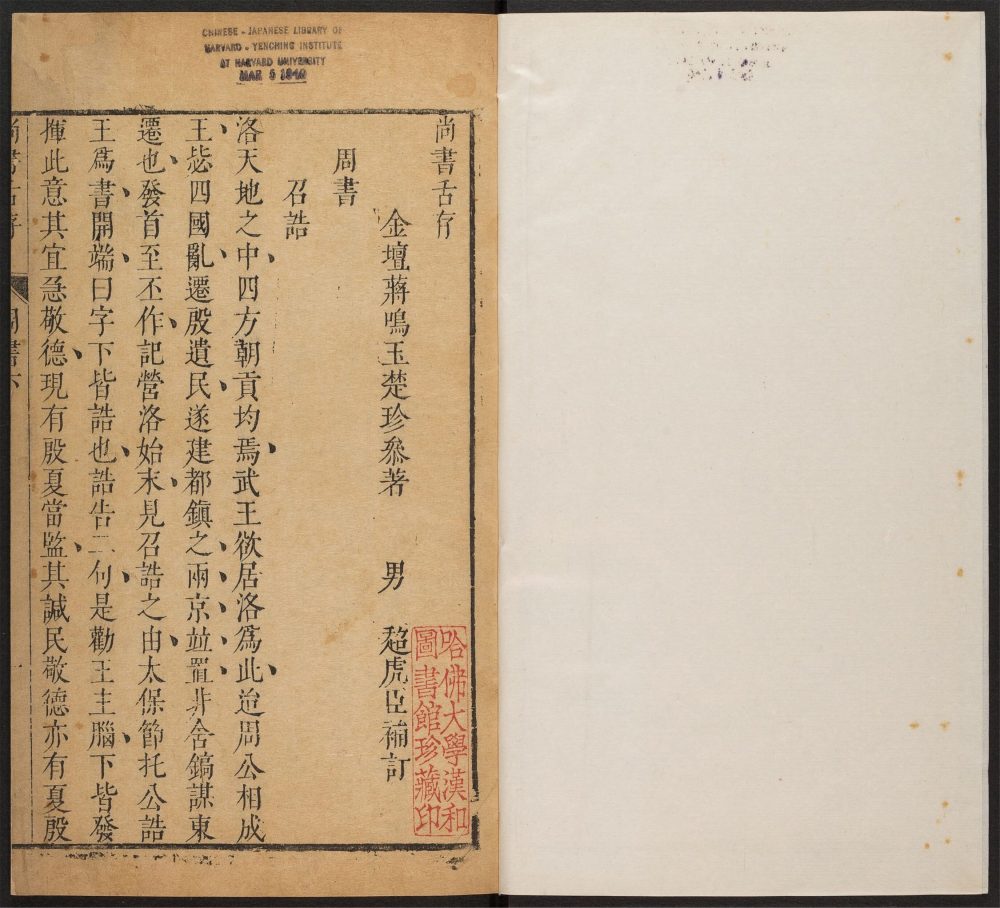 CHINESE - JAPANESE LIBRARY OF
HARVARD - YENCHING INSTITUTE
AT HARVARD UNIVERSITY
MAR 5 1940
尚書舌存
金壇蔣鳴玉楚珍叅著 男 超虎臣補訂
哈佛大學漢和
圖書館珍藏印
周書
召誥
洛天地之中四方朝貢均焉武王欲居洛爲此迨周公相成
王毖四國亂遷殷遺民遂建都鎮之兩京竝置非舍鎬謀東
遷也發首至丕作記營洛始末見召誥之由太保節托公誥
王爲書開端曰字下皆誥也誥告二句是勸王主腦下皆發
揮此意其宜急敬德現有殷夏當監其諴民敬德亦有夏殷
尚書舌存 周書下 一